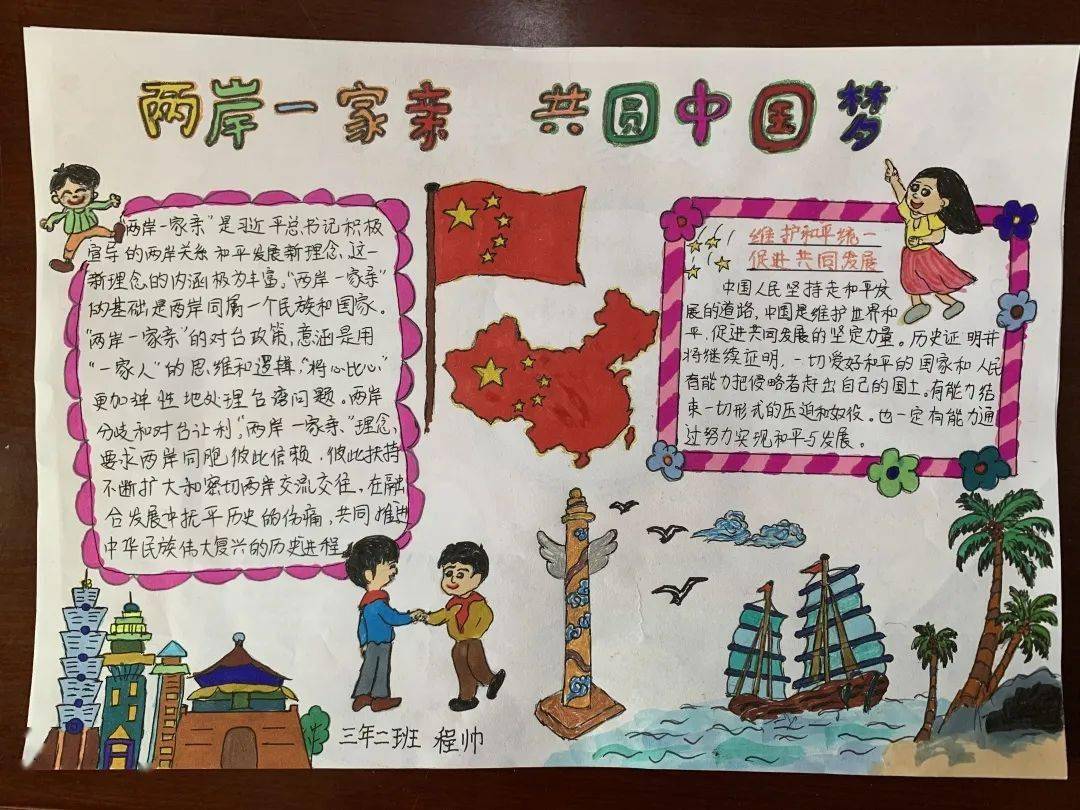 两岸一家亲 共圆中国梦
"两岸一家亲"是习近平总书记积极
宣导的两岸关系和平发展新理念,这一
新理念的内涵极为丰富。"两岸一家亲"
的基础是两岸同属一个民族和国家。
"两岸一家亲"的对台政策,意涵是用
"一家人"的思维和逻辑,"将心比心"
更加弹性地处理台湾问题。两岸
分歧和对台让利,"两岸一家亲"理念,
要求两岸同胞彼此信赖,彼此扶持
不断扩大和密切两岸交流交往,在融
合发展中抚平历史的伤痛,共同推进
中华民族伟大复兴的历史进程
维护和平统一
促进共同发展
中国人民坚持走和平发
展的道路,中国是维护世界和
平,促进共同发展的坚定力量。历史证明并
将继续证明,一切爱好和平的国家和人民
有能力把侵略者赶出自己的国土。有能力结
束一切形式的压迫和奴役。也一定有能力通
过努力实现和平与发展。
三年二班 程帅